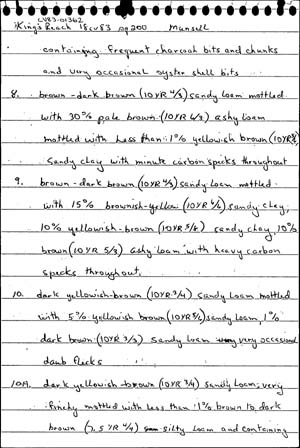 CV83-01362
King's Reach 18cv83 pg 200 Munsell
containing frequent charcoal bits and chunks
and very occasional oyster shell bits
8. brown-dark brown (10YR 4/3) sandy loam mottled
with 30% pale brown (10YR 6/3) ashy loam
mottled with less than 1% yellowish brown (10YR
sandy clay with minute carbon specks throughout
9. brown-dark brown (10YR 4/3) sandy loam mottled
with 15% brownish-yellow (10YR 6/6) sandy clay,
10% yellowish-brown (10YR 5/8) sandy clay, 10%
brown (10YR 5/3) ashy loam with heavy carbon
specks throughout.
10. dark yellowish-brown (10YR 3/4) sandy loam mottled
with 5% yellowish brown (10YR 5/6) sandy loam, 1%
dark brown (10YR 3/3) sandy loam very occasional
daub flecks
10A. dark yellowish-brown (10YR 3/4) sandy loam, very
finely mottled with less than 1% brown to dark
brown (7.5 YR 4/4) silty loam and containing